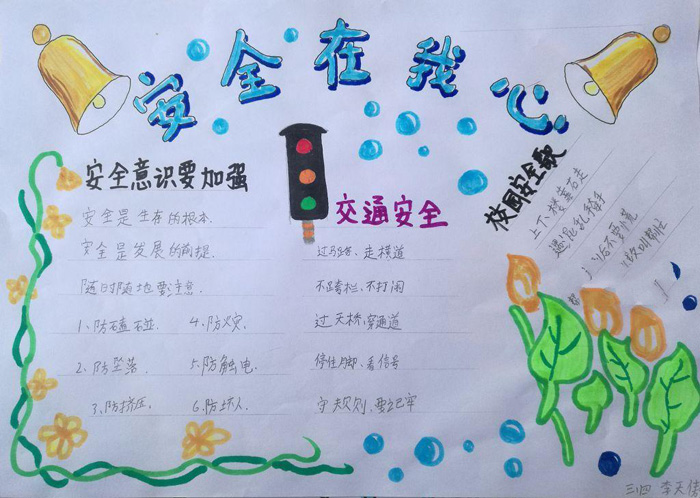 安全在我心
安全意识要加强
安全是生存的根本.
安全是发展的前提.
随时随地要注意.
1、防磕碰. 4、防火灾.
2、防坠落. 5、防触电.
3、防挤压. 6、防坏人.
交通安全
过马路、走横道
不跨栏、不打闹
过天桥、穿通道
停住脚、看信号
守规则、要记牢
校园安全歌
上下楼靠右走
三、四 李天佳